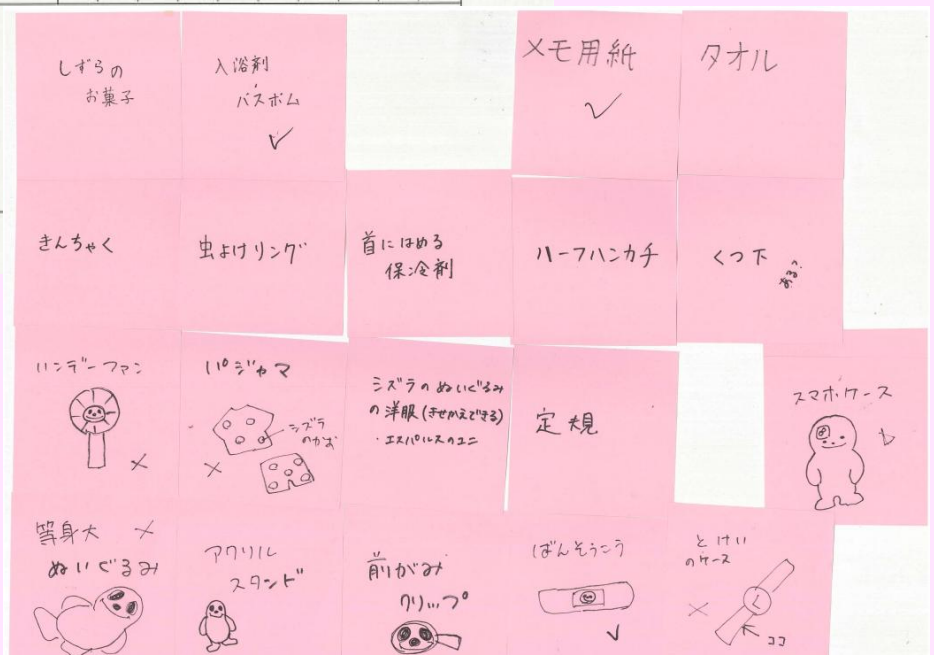 しずらの
お菓子
入浴剤
・
バスボム
メモ用紙
タオル
きんちゃく
虫よけリング
首にはめる
保冷剤
ハーフハンカチ
くつ下
ある?
ハンデーファン
パジャマ
シズラ
のかお
シズラのぬいぐるみ
の洋服(きせかえできる)
・エスパルスのユニ
定規
スマホケース
等身大
ぬいぐるみ
アクリル
スタンド
前がみ
クリップ
ばんそうこう
とけい
のケース
ココ